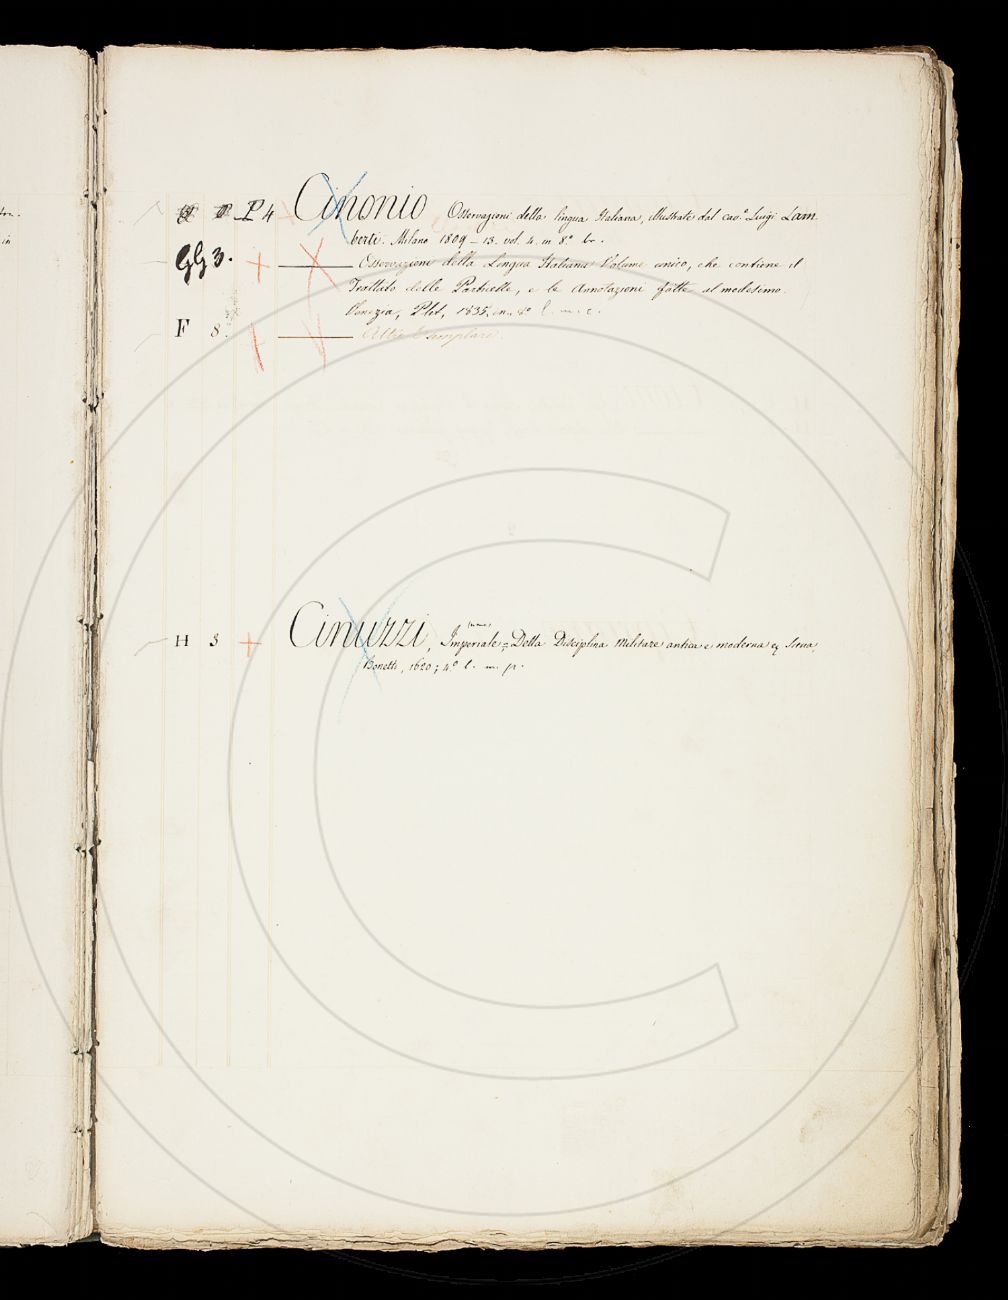 P 4 Cinonio Osservazioni della lingua Italiana, illustrate dal cav.º Luigi Lam
berti. Milano 1809 – 13. vol. 4. in 8.º br.
Gg 3. + ——— Osservazioni della Lingua Italiana Volume unico, che contiene il
Trattato delle Particelle, e le Annotazioni fatte al medesimo.
Venezia, Plet, 1835, in 8º l. m. c.
F 8. ——— Altro Esemplare.
H 3 + Cinuzzi, Imperiale = Della Disciplina Militare antica e moderna = Siena,
Bonetti, 1620; 4.º l. m. p.